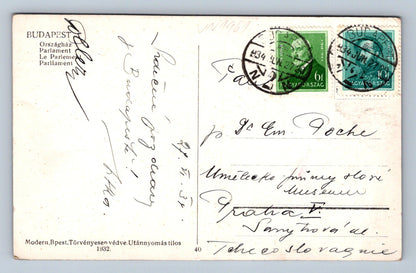 BUDAPEST
Országház
Parlament
Le Parlement
Parliament
Srdečný pozdrav
z Budapešti!
27. VI. 34.
MAGYARORSZÁG
MAGYARORSZÁG
Pan
p. Dr Em. Poche
Umělecko průmyslové
Museum
Praha V.
Sanytrová ul.
Tchecoslovaquie
Modern, Bpest. Törvényesen védve. Utánnyomás tilos
1932.
40